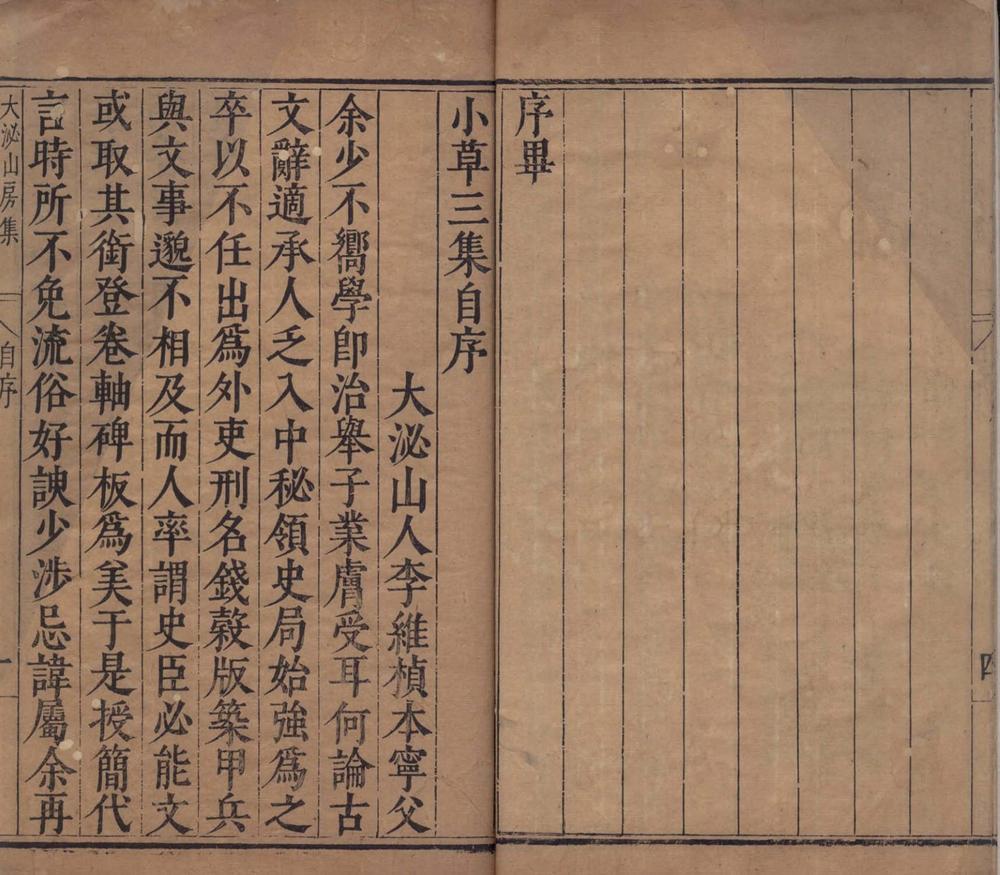 四
序畢
小草三集自序
大泌山人李維楨本寧父
余少不嚮學卽治舉子業膚受耳何論古
文辭適承人乏入中秘領史局始強爲之
卒以不任出爲外吏刑名錢穀版築甲兵
與文事邈不相及而人率謂史臣必能文
或取其銜登卷軸碑板爲美于是授簡代
言時所不免流俗好諛少涉忌諱屬余再
大泌山房集
自序
一